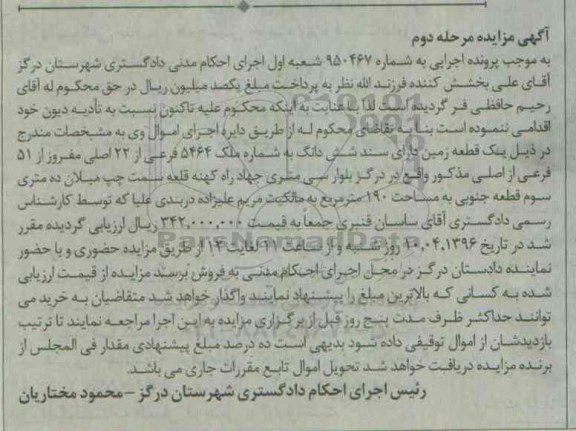 آگهی مزایده مرحله دوم
به موجب پرونده اجرایی به شماره ۹۵۰۴۶۷ شعبه اول اجرای احکام مدنی دادگستری شهرستان درگز
آقای علی بخشش کننده فرزند الله نظر به پرداخت مبلغ یکصد میلیون ریال در حق محکوم له آقای
رحیم حافظی فر گردیده است لذا با عنایت به اینکه محکوم علیه تاکنون نسبت به تأدیه دیون خود
اقدامی ننموده است بنا به تقاضای محکوم له از طریق دایره اجرای اموال وی به مشخصات مندرج
در ذیل یک قطعه زمین دارای سند شش دانگ به شماره ملک ۵۴۶۴ فرعی از ۲۲ اصلی مفروز از ۵۱
فرعی از اصلی مذکور واقع در درگز بلوار سی متری جهاد راه کهنه قلعه سمت چپ میلان ده متری
سوم قطعه جنوبی به مساحت ۱۹۰ مترمربع به مالکیت مریم علیزاده دربندی علیا که توسط کارشناس
رسمی دادگستری آقای ساسان قنبری جمعاً به قیمت ۳۴۲,۰۰۰,۰۰۰ ریال ارزیابی گردیده مقرر
شد در تاریخ ۱۰,۰۴,۱۳۹۶ روز شنبه و از ساعت ۱۱ لغایت ۱۲ از طریق مزایده حضوری و با حضور
نماینده دادستان درگز در محل اجرای احکام مدنی به فروش برسد مزایده از قیمت ارزیابی
شده به کسانی که بالاترین مبلغ را پیشنهاد نمایند واگذار خواهد شد متقاضیان به خرید می
توانند حداکثر ظرف مدت پنج روز قبل از برگزاری مزایده به این اجرا مراجعه نمایند تا ترتیب
بازدیدشان از اموال توقیفی داده شود بدیهی است ده درصد مبلغ پیشنهادی مقدار فی المجلس از
برنده مزایده دریافت خواهد شد تحویل اموال تابع مقررات جاری می باشد.
رئیس اجرای احکام دادگستری شهرستان درگز - محمود مختاریان